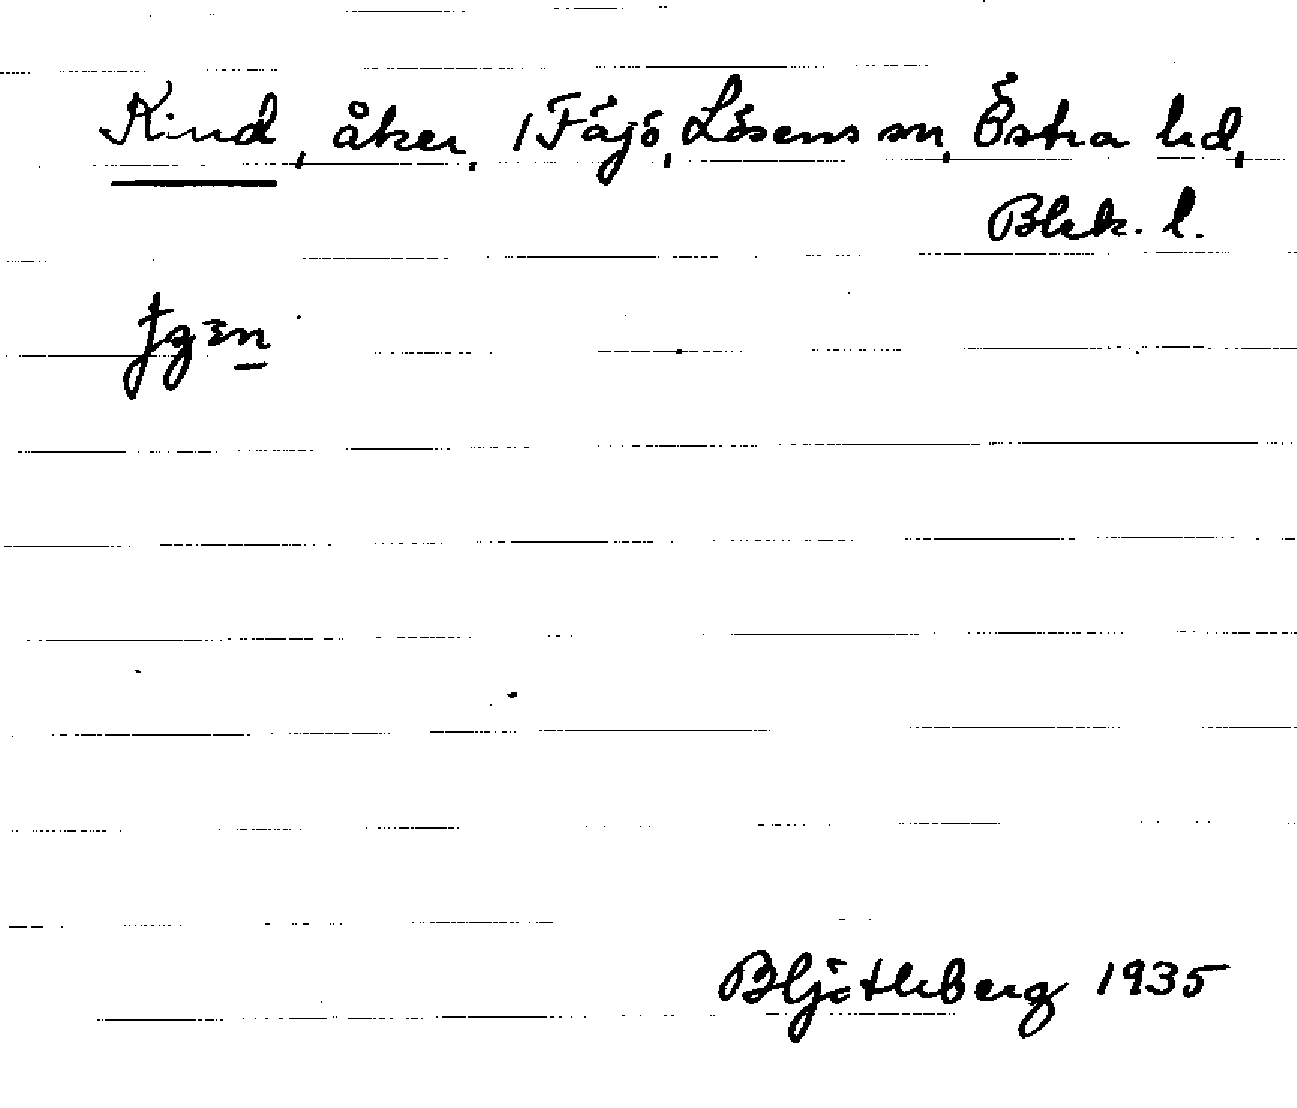 Kind, åker. 1 Fäjö, Lösens sn, Östra hd,
Blek. l.
B Hjöthberg 1935